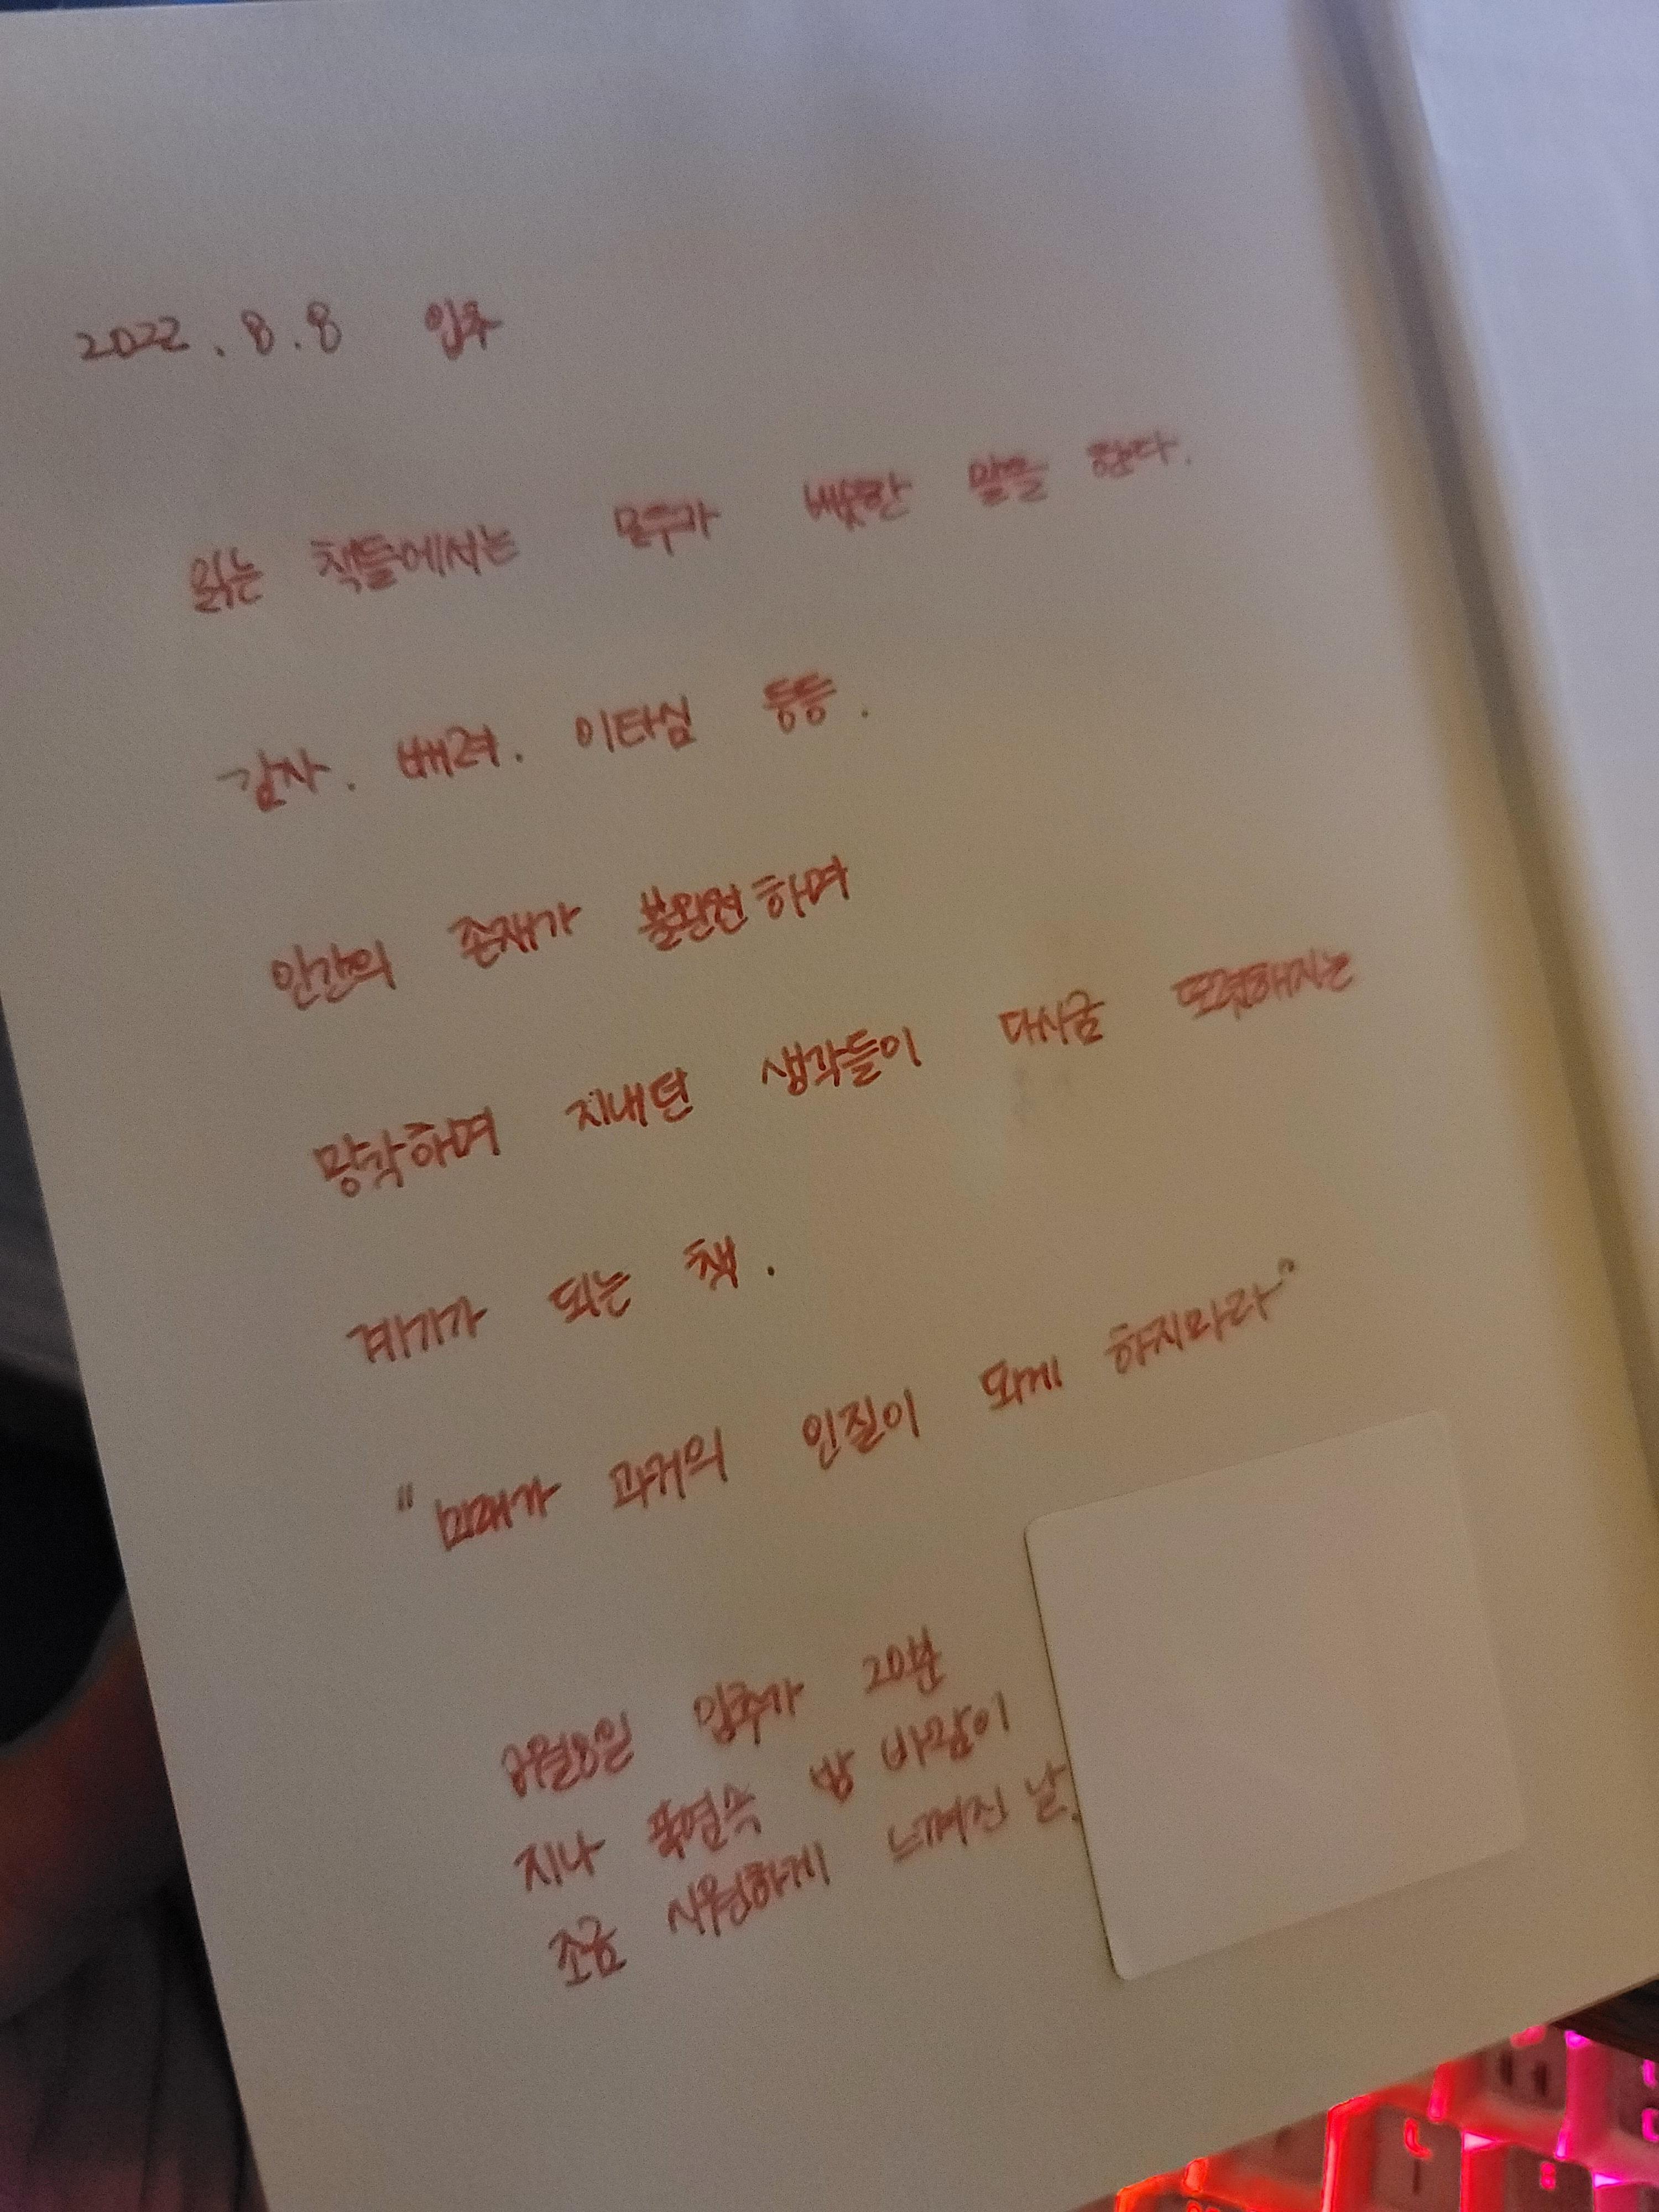 2022.8.8 입추
읽는 책들에서는 모두가 비슷한 말을 한다.
감사. 배려. 이타심 등등.
인간의 존재가 불완전하며
망각하며 지내던 생각들이 다시금 또렷해지는
계기가 되는 책.
"미래가 과거의 인질이 되게 하지마라"
8월8일 입추가 20분
지나 폭염속 밤 바람이
조금 시원하게 느껴진 날.